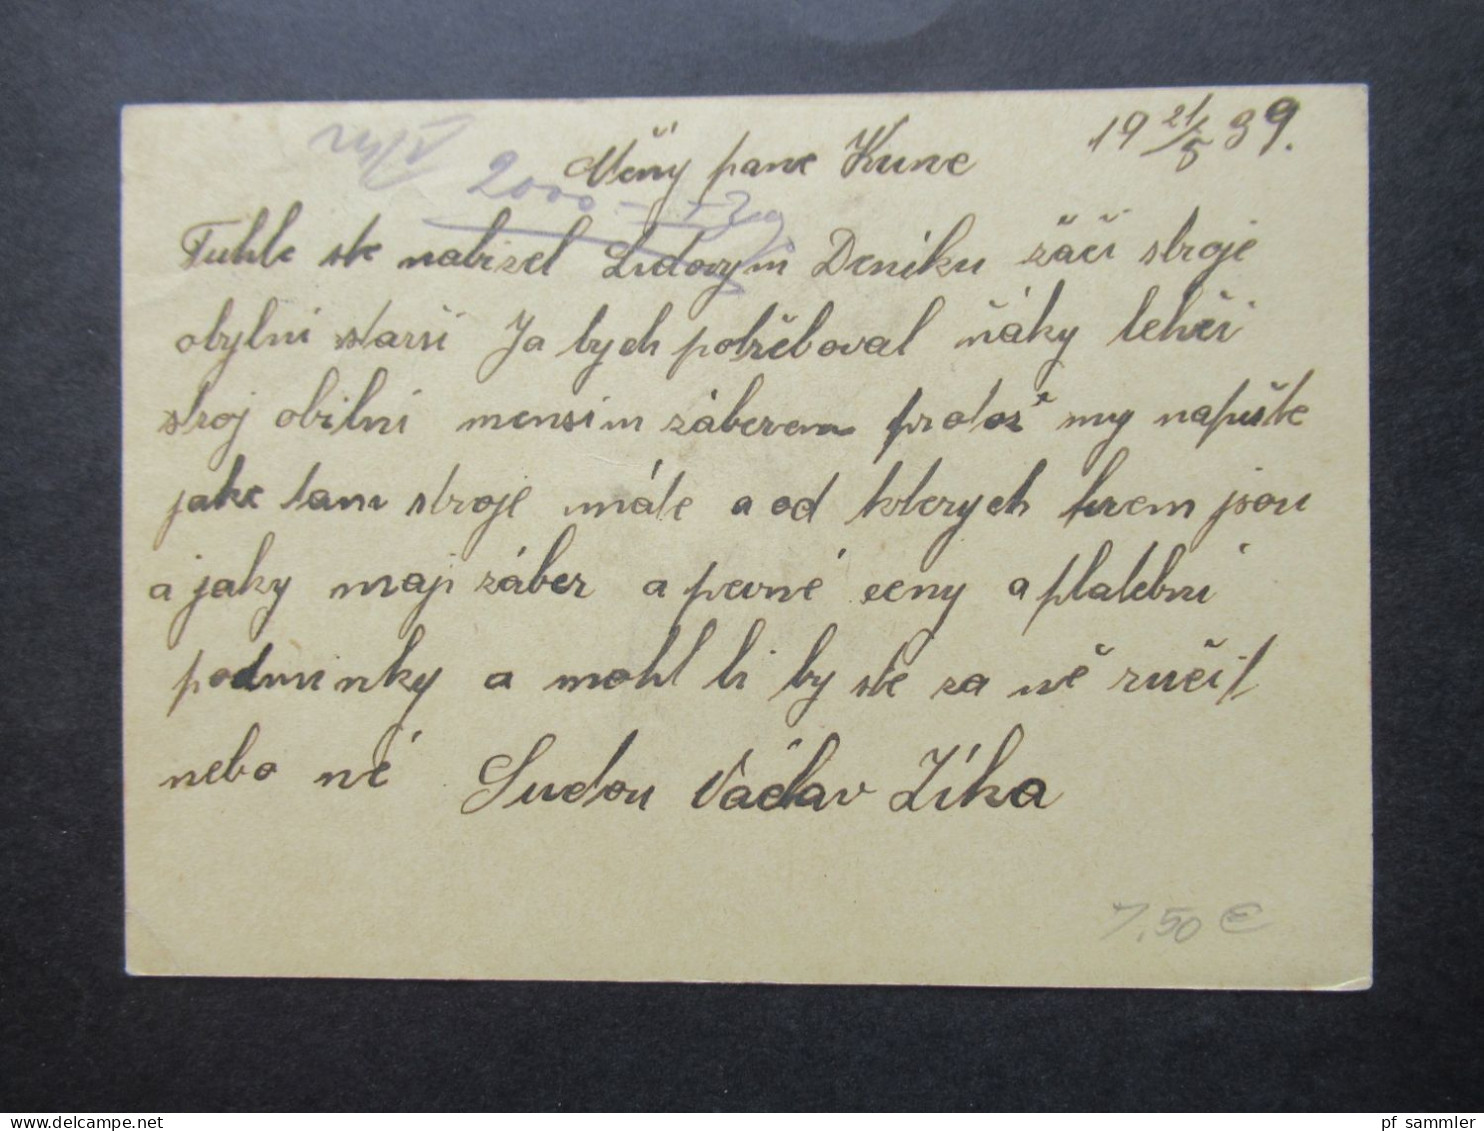 19 21/5 39.
Věný pane Kune
2000
Tuhle ste nabizel Lidovym Deniku žací stroje
obylni starši Ja bych potřeboval ňáky lehči
stroj obilni mensim záberem protož my napište
jake tam stroje máte a od kterych firem jsou
a jaky maji záber a pevné ceny a platebni
podminky a mohl li by ste za ně ručit
nebo né Sudou Václav Zíka
7,50 €
pf sammler